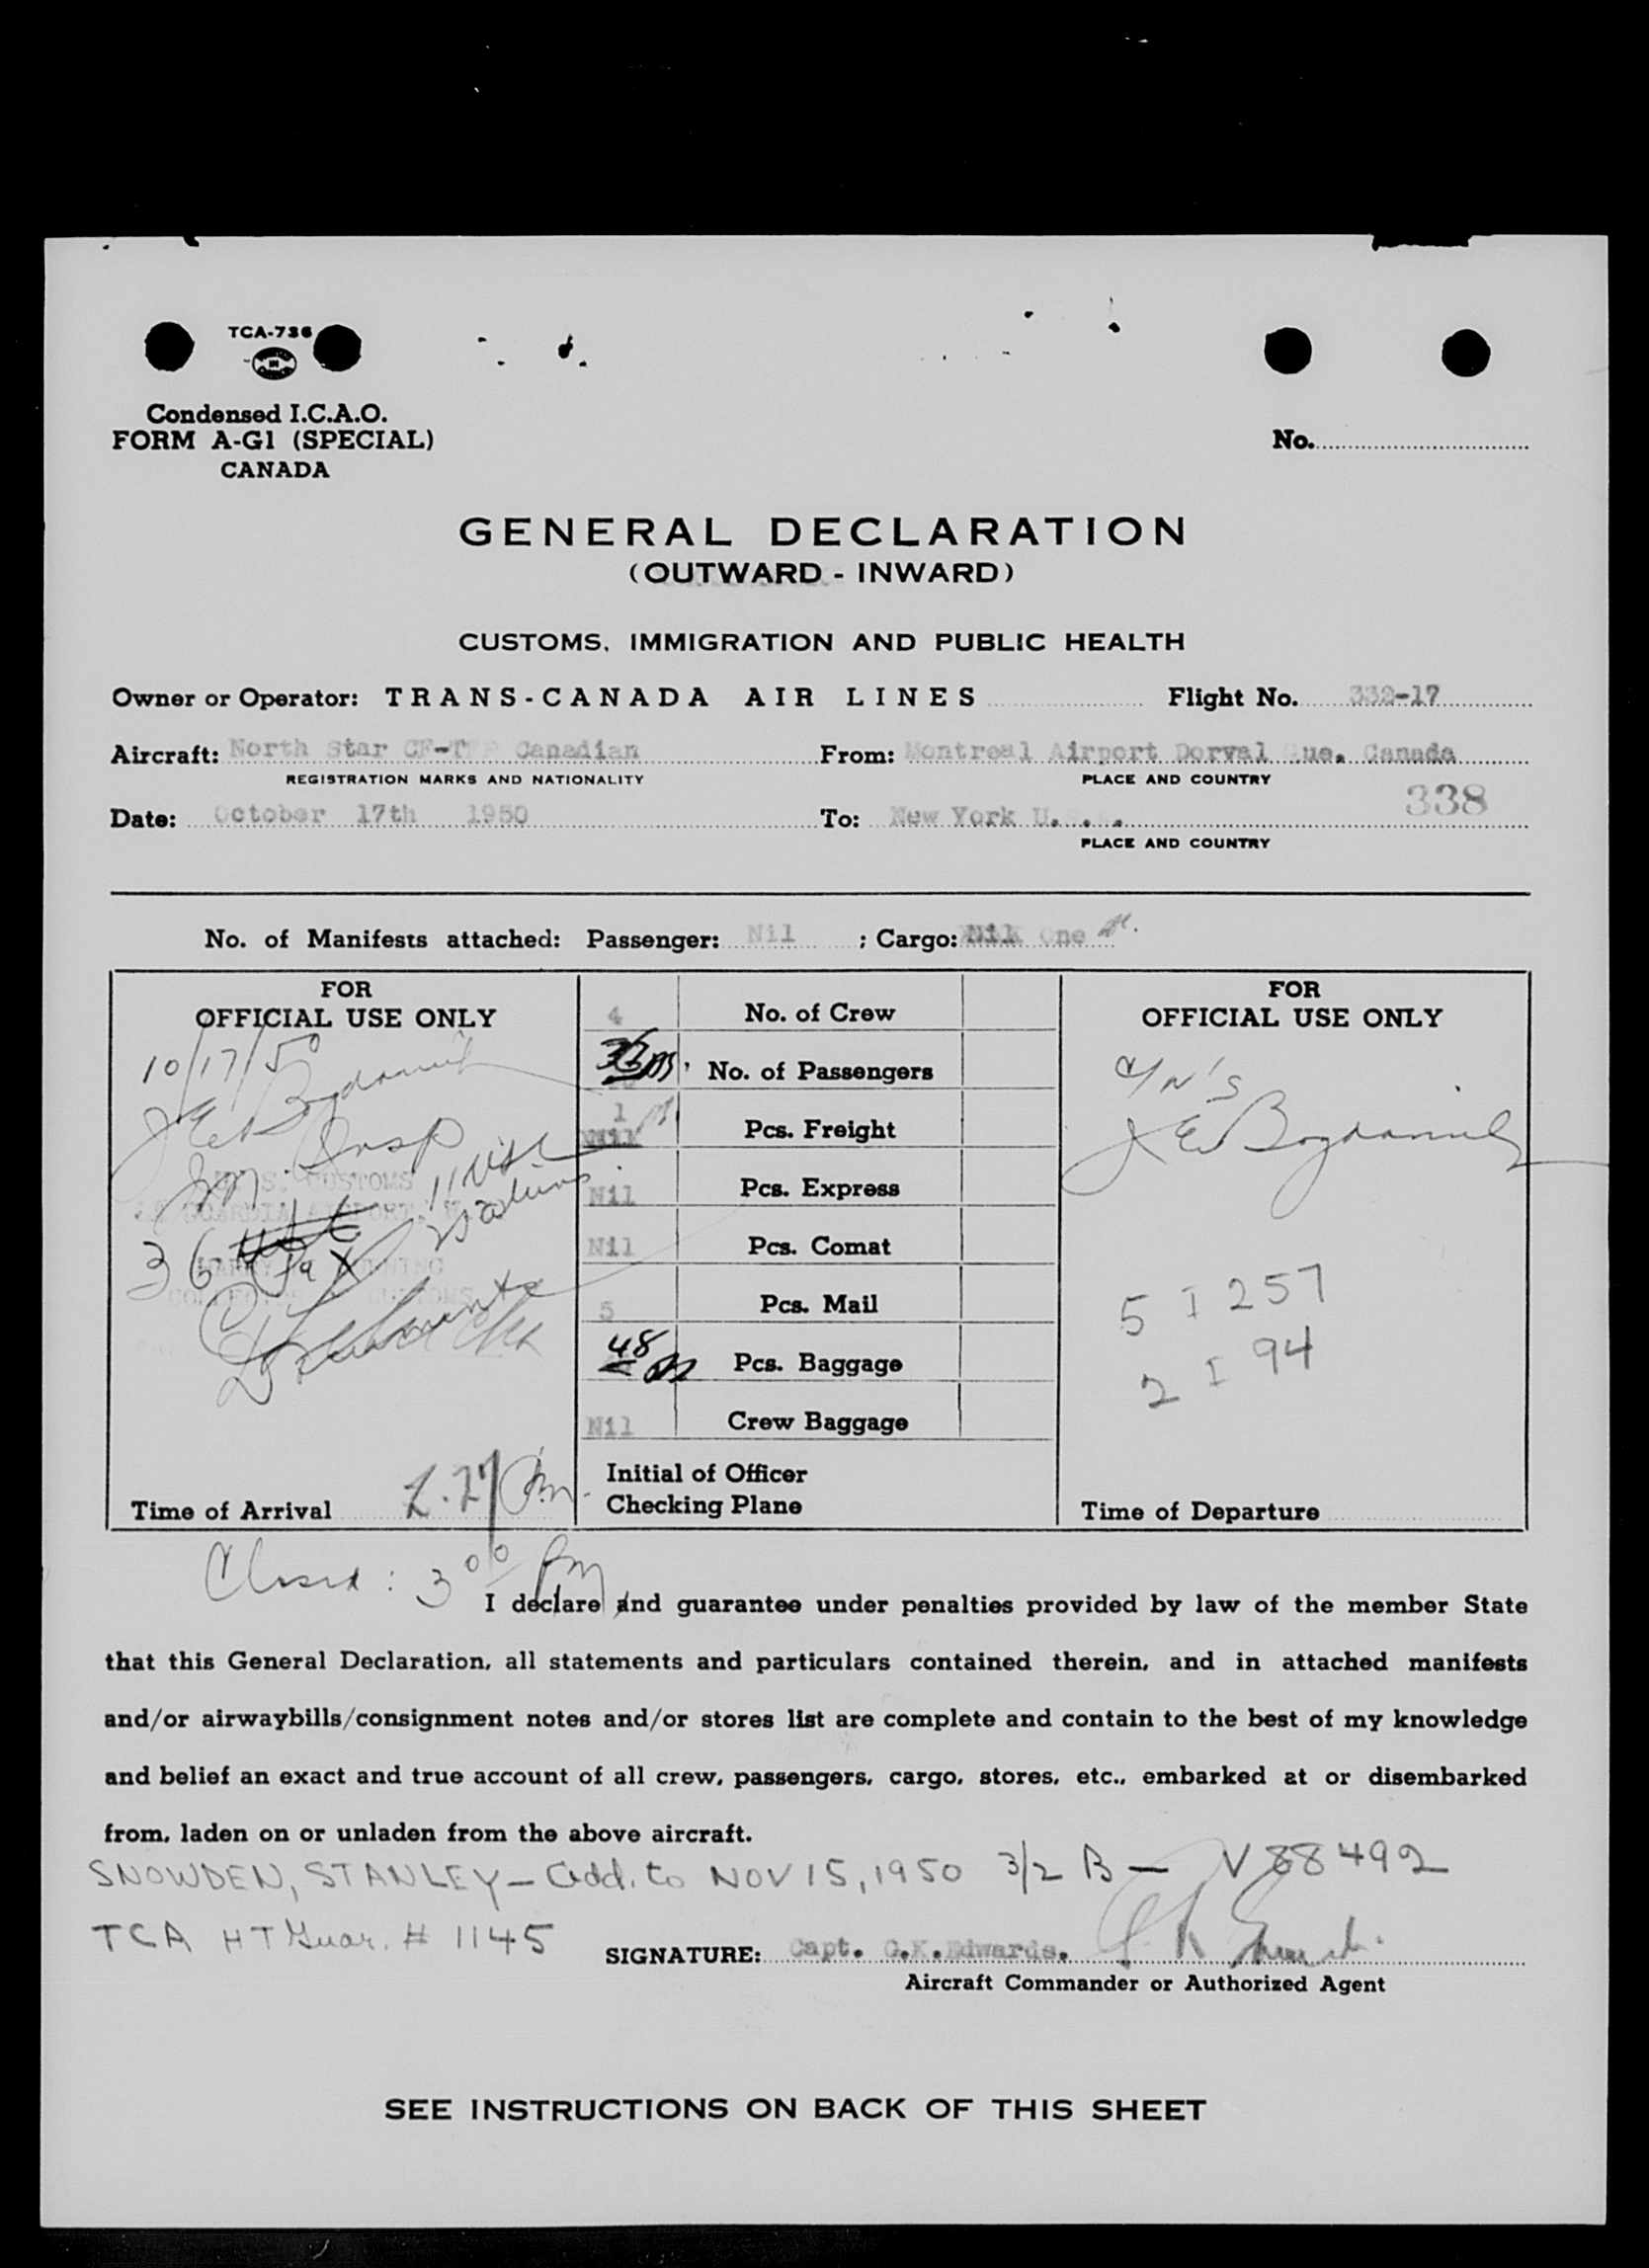 TCA-736
Condensed I.C.A.O.
FORM A-G1 (SPECIAL)
CANADA
No.
GENERAL DECLARATION
(OUTWARD - INWARD)
CUSTOMS, IMMIGRATION AND PUBLIC HEALTH
Owner or Operator: TRANS-CANADA AIR LINES Flight No. 332-17
Aircraft: North Star Canadian From: Montreal Airport Dorval Que. Canada
REGISTRATION MARKS AND NATIONALITY PLACE AND COUNTRY
338
Date: October 17th 1950 To: New York
PLACE AND COUNTRY
No. of Manifests attached: Passenger: Nil ; Cargo: One
FOR
OFFICIAL USE ONLY
10/17/50
Insp
CUSTOMS
36 Pax
Time of Arrival 2.27 Pm.
4 No. of Crew
No. of Passengers
1 Nil Pcs. Freight
Nil Pcs. Express
Nil Pcs. Comat
5 Pcs. Mail
48 Pcs. Baggage
Nil Crew Baggage
Initial of Officer
Checking Plane
FOR
OFFICIAL USE ONLY
5 I 257
2 I 94
Time of Departure
Closed: 3 00 Pm
I declare and guarantee under penalties provided by law of the member State
that this General Declaration, all statements and particulars contained therein, and in attached manifests
and/or airwaybills/consignment notes and/or stores list are complete and contain to the best of my knowledge
and belief an exact and true account of all crew, passengers, cargo, stores, etc., embarked at or disembarked
from, laden on or unladen from the above aircraft.
SNOWDEN, STANLEY - add. to NOV 15, 1950 3/2 B - V88492
TCA HT Guar. # 1145
SIGNATURE: Capt. G.K. Edwards.
Aircraft Commander or Authorized Agent
SEE INSTRUCTIONS ON BACK OF THIS SHEET